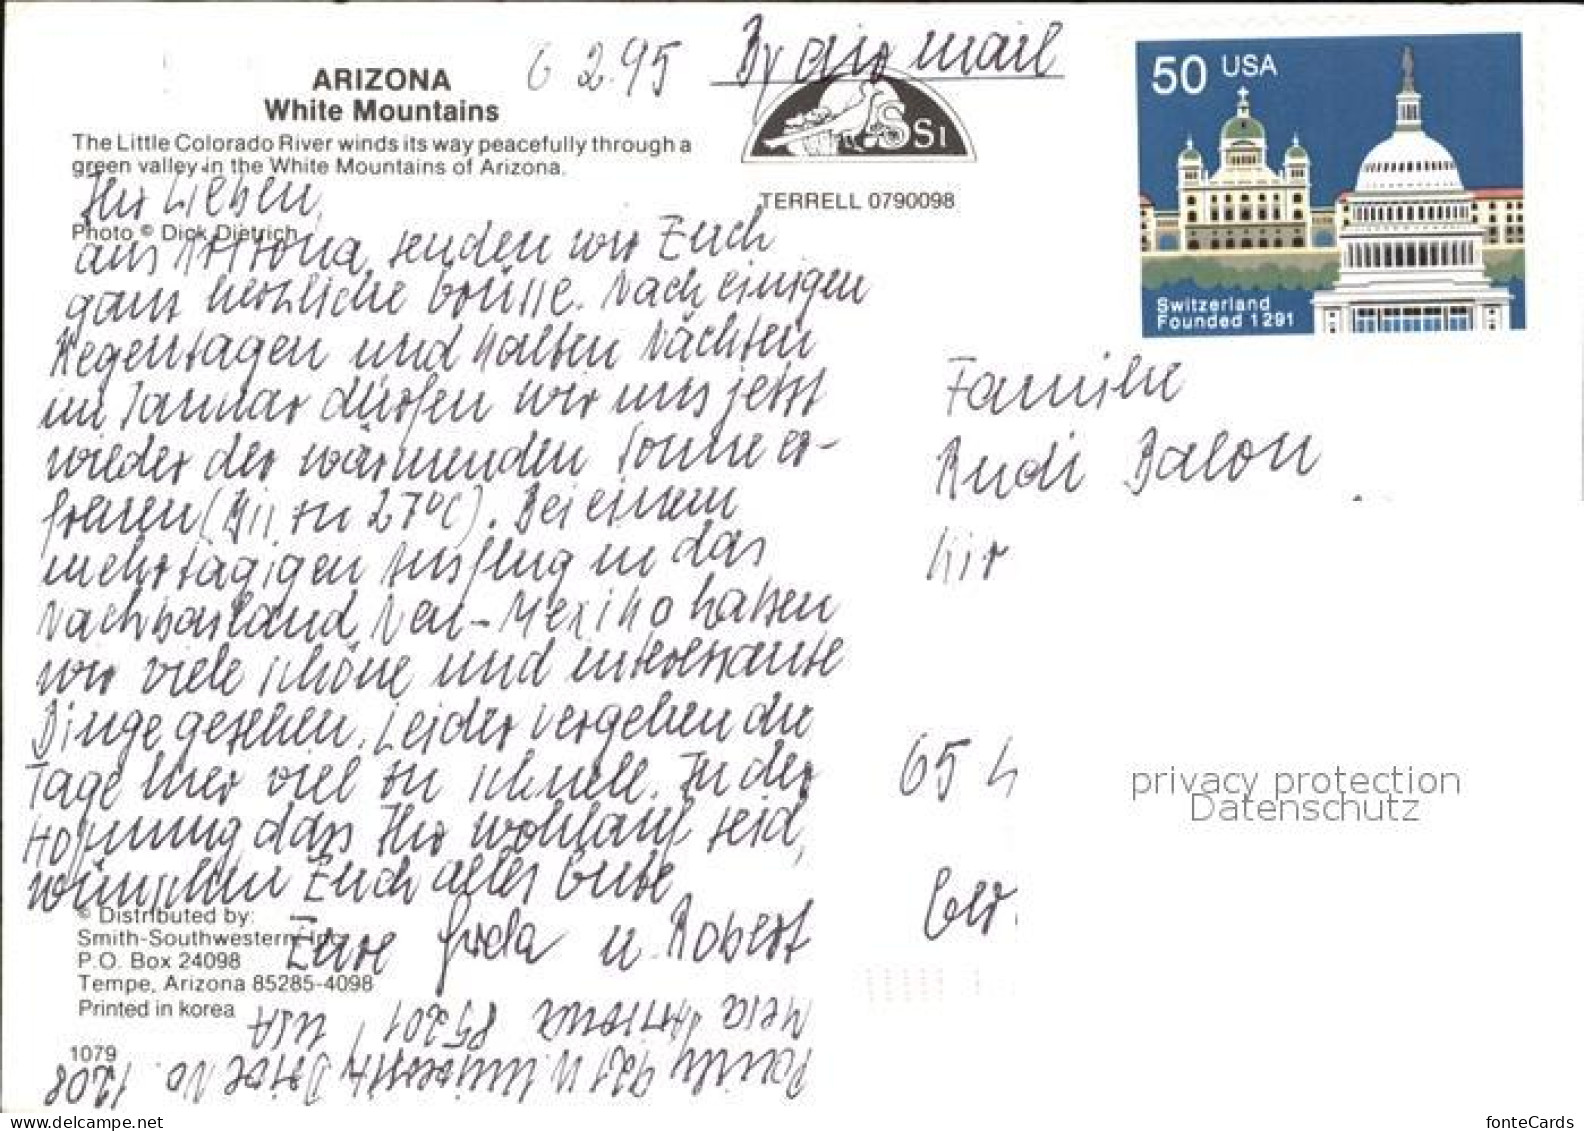 ARIZONA
White Mountains
The Little Colorado River winds its way peacefully through a
green valley in the White Mountains of Arizona.
Photo © Dick Dietrich
6 2.95
By air mail
SSI
TERRELL 0790098
50 USA
Switzerland
Founded 1291
Ihr Lieben,
aus Arizona senden wir Euch
ganz herzliche Grüsse. Nach einigen
Regentagen und kalten Nächten
im Januar dürfen wir uns jetzt
wieder der wärmenden Sonne er-
freuen (Bis zu 27°C). Bei einem
mehrtägigen Ausflug in das
Nachbarland New-Mexiko haben
wir viele schöne und interessante
Dinge gesehen. Leider vergehen die
Tage hier viel zu schnell. In der
Hoffnung dass Ihr wohlauf seid,
wünschen Euch alles Gute
Eure Greda u. Robert
© Distributed by:
Smith-Southwestern, Inc.
P.O. Box 24098
Tempe, Arizona 85285-4098
Printed in korea
1079
921 W. University Drive No. 1208
Mesa Arizona 85201, USA
Familie
Rudi Balon
Kir
65
privacy protection
Datenschutz
www.delcampe.net
fonteCards